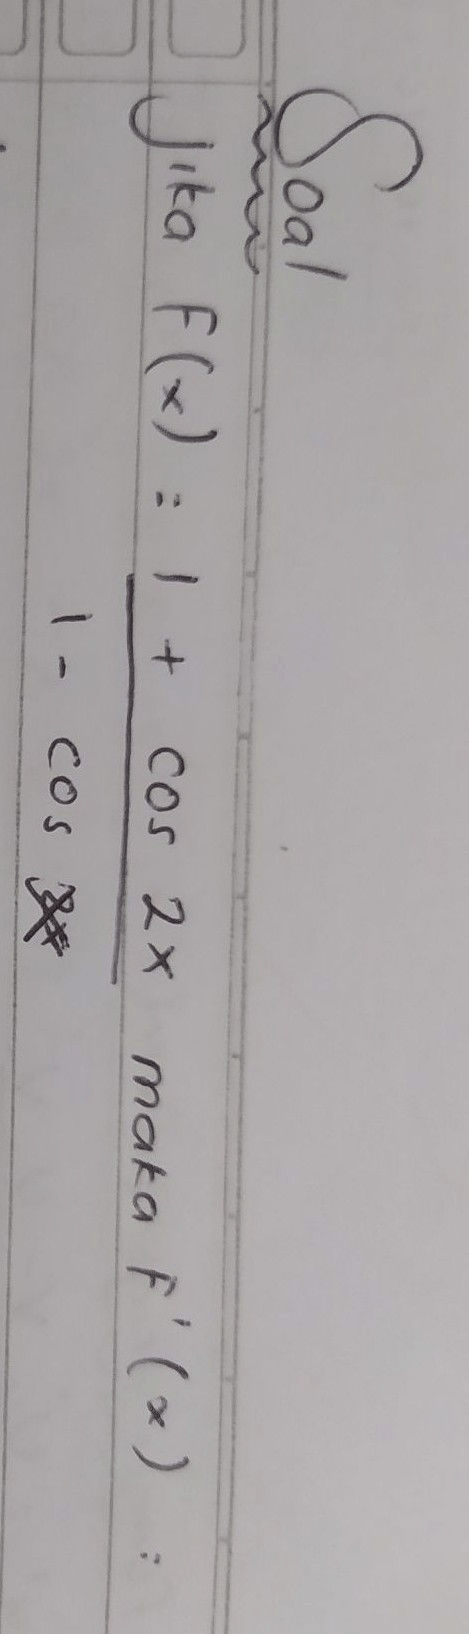 Soal
Jika F(x) = 1 + cos 2x maka F'(x) =
1 - cos